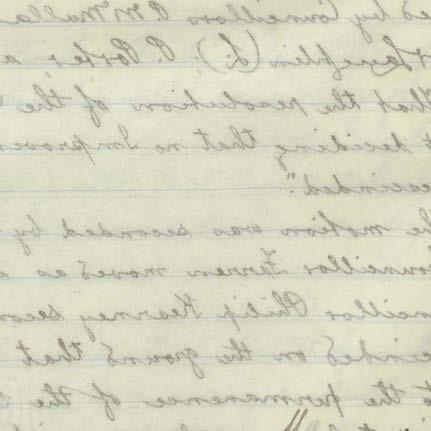 by Councillors P. McMulla
Laughlin (L.), P. Porter, a
that the resolution of the
deciding that no Improvem
rescinded."
he motion was seconded by
ouncillor Farren moved as a
ncillor Philip Kearney secon
on the ground that
the permanence of the